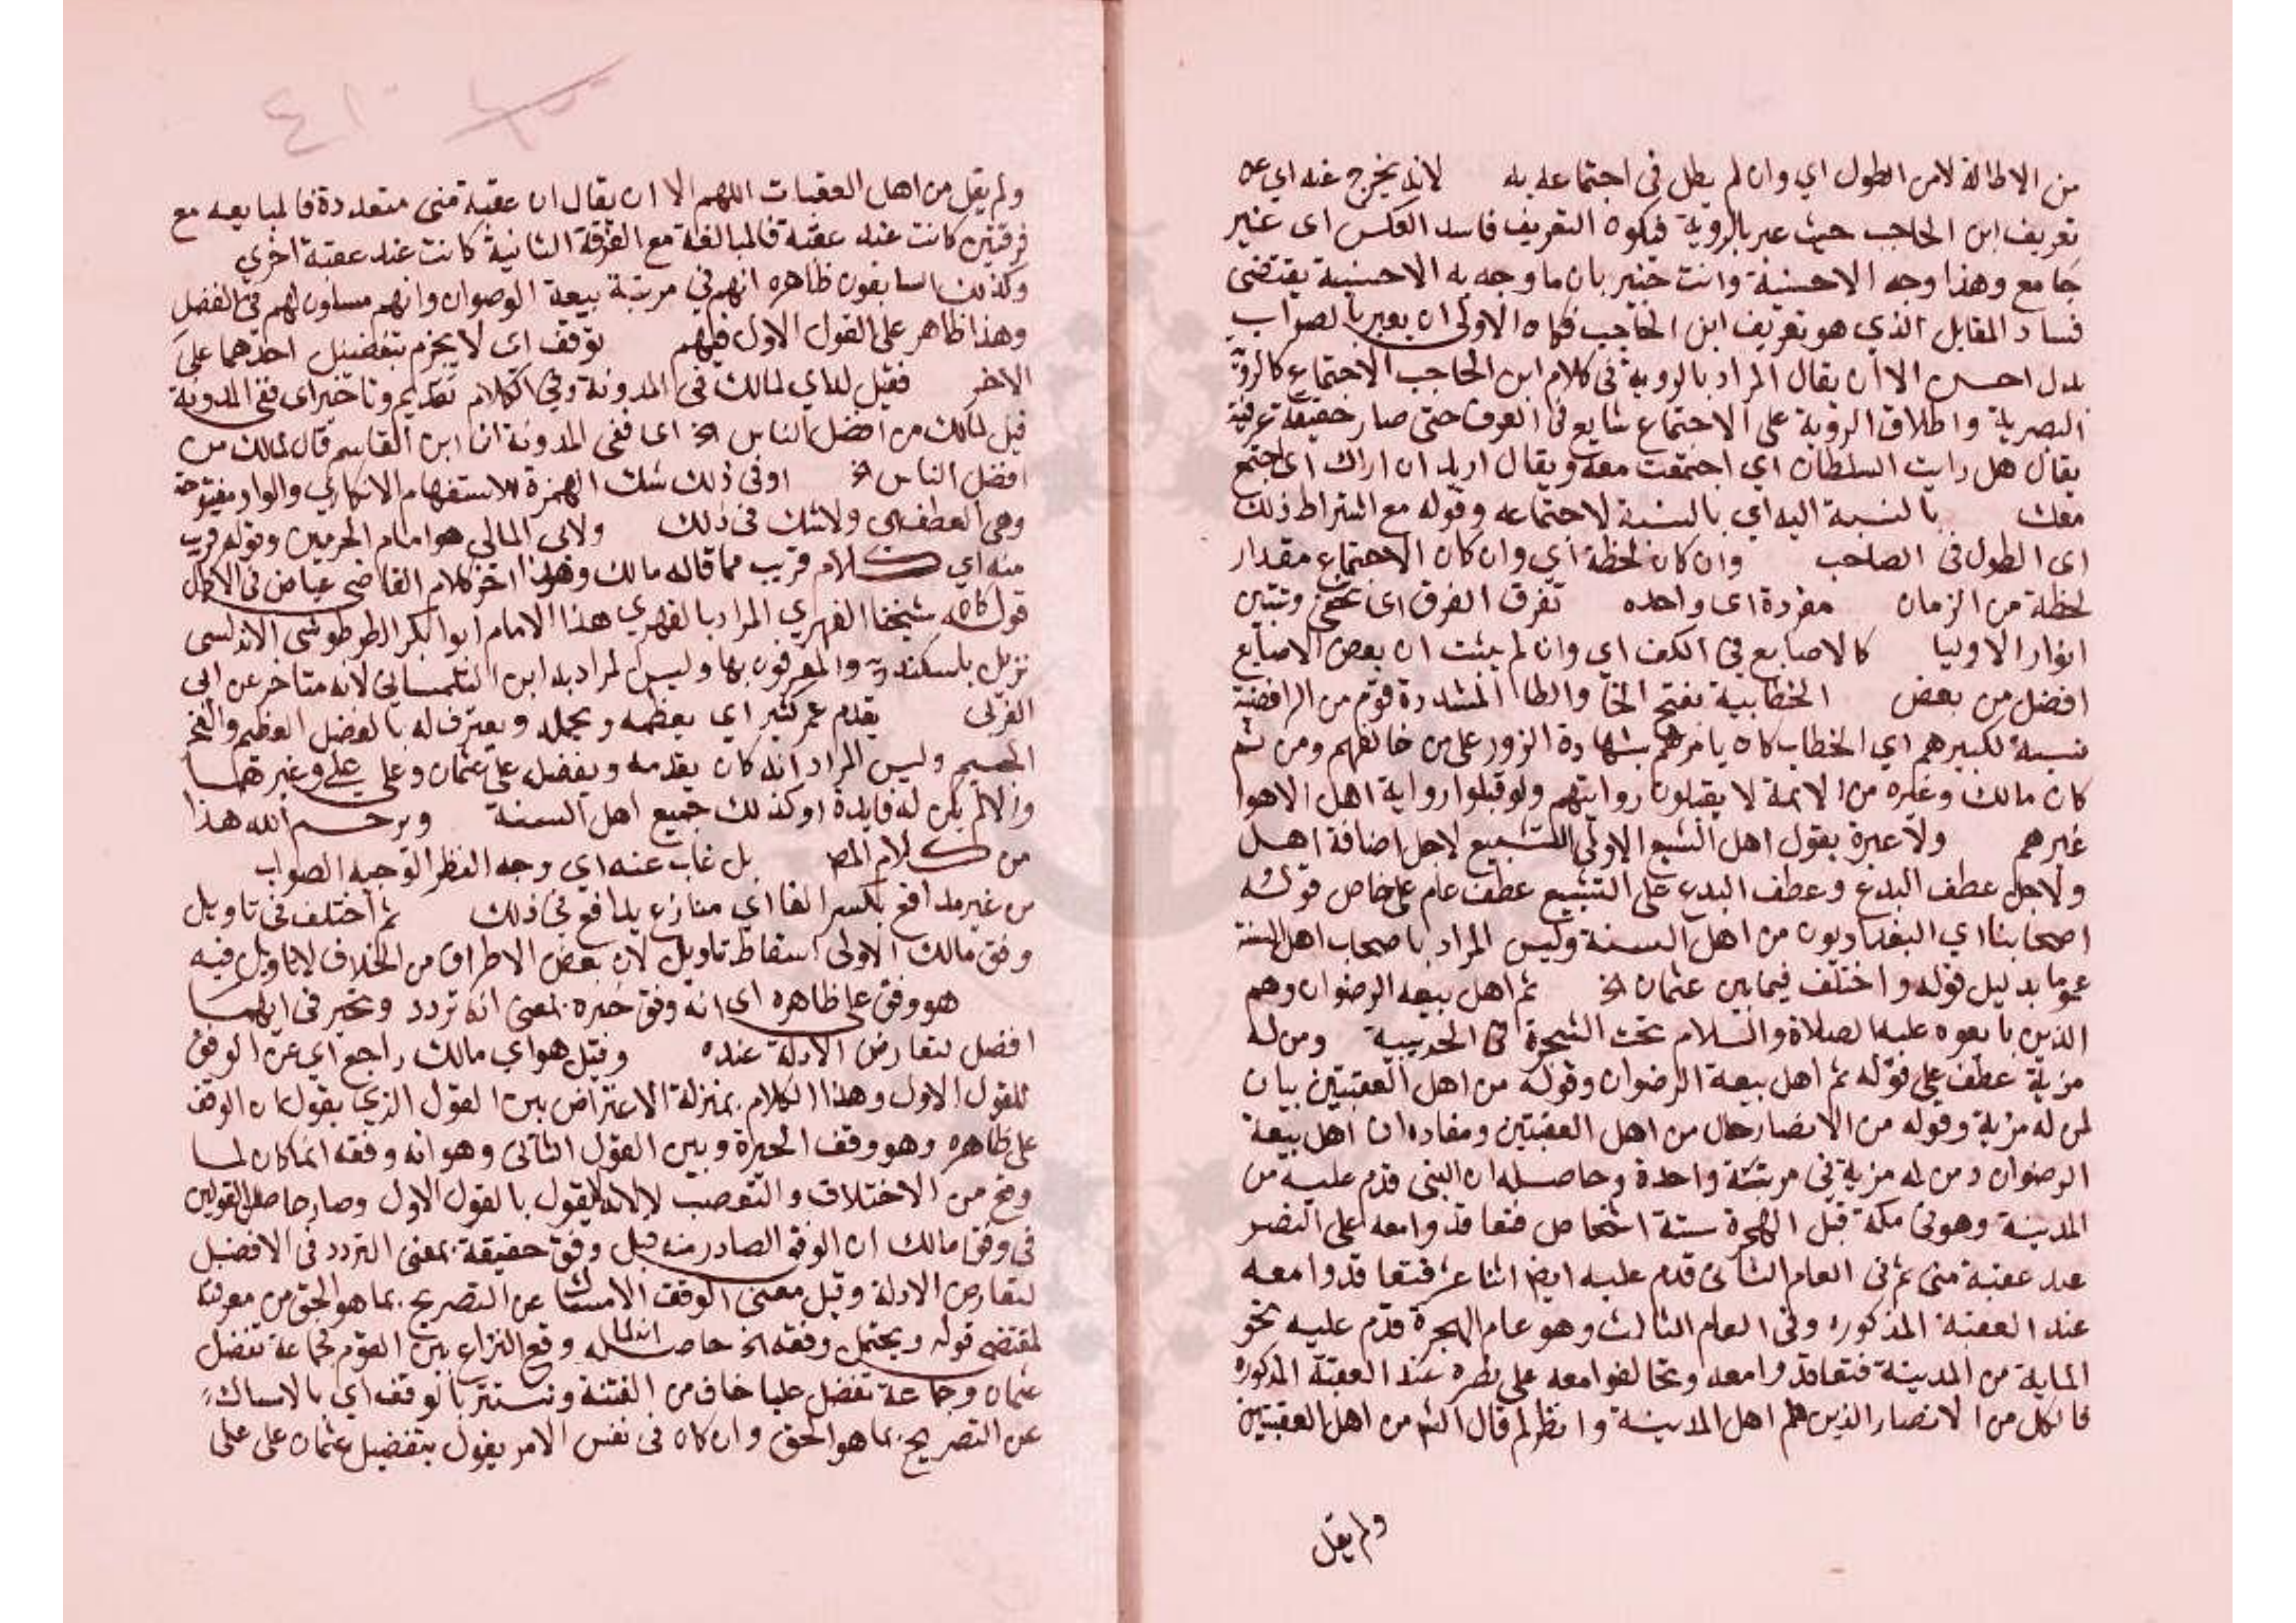 من الاطالة لامن الطول اي وان لم يطل في اجتماعه به لانه يخرج عنه اي عن
تعريف ابن الحاجب حيث عبر بالروية فيكون التعريف فاسد العكس اى غير
جامع وهذا وجه الاحسنية وانت خبير بان ما وجه به الاحسنية يقتضى
فساد المقابل الذي هو تعريف ابن الحاجب فكان الاولى ان يعبر بالصواب
بدل احسن الا ان يقال المراد بالروية في كلام ابن الحاجب الاجتماع كالروية
البصرية واطلاق الروية على الاجتماع شايع في العرف حتى صار حقيقة عرفية
يقال هل رايت السلطان اي اجتمعت معه ويقال اريد ان اراك اى اجتمع
معك بالنسبة اليه اي بالنسبة لاجتماعه وقوله مع اشتراط ذلك
اى الطول في الصاحب وان كان لحظة اي وان كان الاجتماع مقدار
لحظة من الزمان مفردة اى واحده تفرق الفرق اى وتبين
انوار الاوليا كالاصابع في الكف اي وان لم يثبت ان بعض الاصابع
افضل من بعض الخطابية بفتح الخا والطا المشددة قوم من الرافضة
نسبة لكبيرهم اي الخطاب كان يامرهم بشهادة الزور على من خالفهم ومن ثم
كان مالك وغيره من الايمة لا يقبلون روايتهم ولو قبلوا رواية اهل الاهوا
غيرهم ولا عبرة بقول اهل التشيع الاولى التشييع لاجل اضافة اهل
ولاجل عطف البدع وعطف البدع على التشيع عطف عام على خاص قوله
اصحابنا اي البغداديون من اهل السنة وليس المراد باصحاب اهل السنة
عموما بدليل قوله واختلف فيما بين عثمان الخ ثم اهل بيعة الرضوان وهم
الذين بايعوه عليه الصلاة والسلام تحت الشجرة في الحديبية ومن له
مزية عطف على قوله ثم اهل بيعة الرضوان وقوله من اهل العقبتين بيان
لمن له مزية وقوله من الانصار حال من اهل العقبتين ومفاده ان اهل بيعة
الرضوان ومن له مزية في مرتبة واحدة وحاصله ان النبى قدم عليه من
المدينة وهو في مكة قبل الهجرة ستة اشخاص فتعاقدوا معه على النصر
عند عقبة منى ثم في العام الثانى قدم عليه ايضا اثنا عشر فتعاقدوا معه
عند العقبة المذكورة وفي العام الثالث وهو عام الهجرة قدم عليه نحو
الماية من المدينة فتعاقدوا معه وتحالفوا معه على نصره عند العقبة المذكوره
فالكل من الانصار الذين هم اهل المدينة وانظر لم قال الشر من اهل العقبتين
ولم يقل
ولم يقل من اهل العقبات اللهم الا ان يقال ان عقبة منى متعددة فالمبايعه مع
فرقتين كانت عند عقبة فالمبالغة مع الفرقة الثانية كانت عند عقبة اخرى
وكذلك السابقون ظاهره انهم في مرتبة بيعة الرضوان وانهم مساوون لهم في الفضل
وهذا ظاهر على القول الاول فيهم توقف اى لا يجزم بتفضيل احدهما على
الاخر فقيل لداي لمالك في المدونة وفي الكلام تقديم وتاخير اى ففي المدونة
قيل لمالك من افضل الناس الخ اى ففي المدونة ان ابن القاسم قال لمالك من
افضل الناس الخ اوفي ذلك شك الهمزة للاستفهام الانكاري والواو مفتوحة
وهى العطف اى ولا شك في ذلك ولابى المالي هو امام الحرمين وقوله قريب
منه اي كلام قريب مما قاله مالك وهذا اخر كلام القاضى عياض في الاكمال
قوله شيخنا الفهري المراد بالفهري هذا الامام ابوالبكر الطرطوشى الاندلسى
نزيل باسكندرية والمعرفون بها وليس المراد به ابن التلمسانى لانه متاخر عن ابى
العربى يقدم عمر كثير اي يعظمه ويجمله ويعترف له بالفضل العظيم والفخر
الجسيم وليس المراد انه كان يقدمه ويفضله على عثمان وعلى على وغيرهما
والا لم يكن له فايدة او كذلك جميع اهل السنة ويرحم الله هذا
من كلام المص بل غاب عنه اي وجه النظر الوجيه الصواب
من غير مدافع بكسر الفا اي منازع يدافع في ذلك ثم اختلف في تاويل
وقف مالك الاولى اسقاط تاويل لان بعض الاطراف من الخلاف لا تاويل فيه
هو وقف على ظاهره اى انه وقف حيره بمعنى انه تردد وتحير في ايهما
افضل لتعارض الادلة عنده وقيل هو اي مالك راجع اي عن الوقف
للقول الاول وهذا الكلام بمنزلة الاعتراض بين القول الذي يقول ان الوقف
على ظاهره وهو وقف الحيرة وبين القول الثانى وهو انه وقفه انما كان لما
وقع من الاختلاف والتعصب لا لانه يقول بالقول الاول وصار حاصل القولين
في وقف مالك ان الوقف الصادر منه قيل وقف حقيقة بمعنى التردد في الافضل
لتعارض الادلة وقيل معنى الوقف الامساك عن التصريح بما هو الحق من معرفته
لمقتضى قوله ويحتمل وقفه الخ حاصله انه لما وقع النزاع بين القوم فجماعة تفضل
عثمان وجماعة تفضل عليا خاف من الفتنة وتستتر بالوقف اي بالامساك
عن التصريح بما هو الحق وان كان في نفس الامر يقول بتفضيل عثمان على على